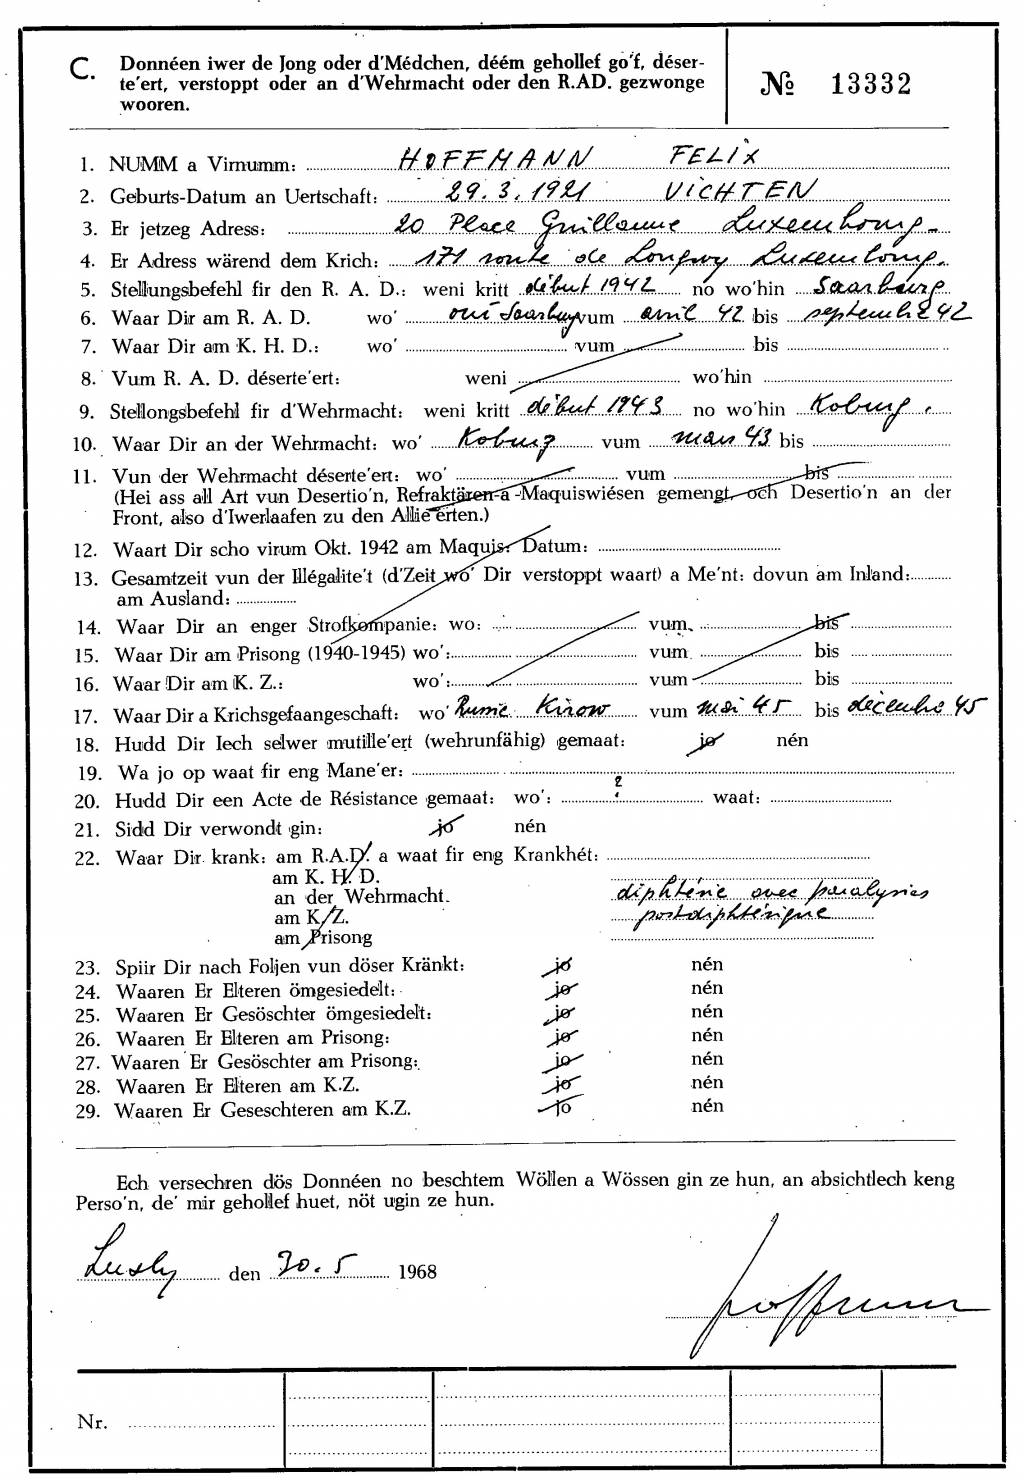 C. Donnéen iwer de Jong oder d'Médchen, déém gehollef go'f, déser-
te'ert, verstoppt oder an d'Wehrmacht oder den R.AD. gezwonge
wooren.
№ 13332
1. NUMM a Virnumm: HOFFMANN FELIX
2. Geburts-Datum an Uertschaft: 29.3.1921 VICHTEN
3. Er jetzeg Adress: 20 Place Guillaume Luxembourg
4. Er Adress wärend dem Krich: 171 route de Longwy Luxembourg.
5. Stellungsbefehl fir den R. A. D.: weni kritt début 1942 no wo'hin Saarburg
6. Waar Dir am R. A. D. wo' oui Saarburg vum avril 42 bis septembre 42
7. Waar Dir am K. H. D.: wo' vum bis
8. Vum R. A. D. déserte'ert: weni wo'hin
9. Stellongsbefehl fir d'Wehrmacht: weni kritt début 1943 no wo'hin Koburg.
10. Waar Dir an der Wehrmacht: wo' Koburg vum mars 43 bis
11. Vun der Wehrmacht déserte'ert: wo' vum bis
(Hei ass all Art vun Desertio'n, Refraktären-a -Maquiswiésen gemengt, och Desertio'n an der
Front, also d'Iwerlaafen zu den Allie'erten.)
12. Waart Dir scho virum Okt. 1942 am Maquis: Datum:
13. Gesamtzeit vun der Illégalite't (d'Zeit wo' Dir verstoppt waart) a Me'nt: dovun am Inland:
am Ausland:
14. Waar Dir an enger Strofkompanie: wo: vum bis
15. Waar Dir am Prisong (1940-1945) wo': vum bis
16. Waar Dir am K. Z.: wo': vum bis
17. Waar Dir a Krichsgefaangeschaft: wo' Russie Kirow vum mai 45 bis décembre 45
18. Hudd Dir Iech selwer mutille'ert (wehrunfähig) gemaat: jo nén
19. Wa jo op waat fir eng Mane'er:
20. Hudd Dir een Acte de Résistance gemaat: wo': ? waat:
21. Sidd Dir verwondt gin: jo nén
22. Waar Dir krank: am R.A.D. a waat fir eng Krankhét:
am K. H. D.
an der Wehrmacht. diphtérie avec paralysies
am K. Z. postdiphtérique
am Prisong
23. Spiir Dir nach Foljen vun döser Kränkt: jo nén
24. Waaren Er Elteren ömgesiedelt: jo nén
25. Waaren Er Gesöschter ömgesiedelt: jo nén
26. Waaren Er Elteren am Prisong: jo nén
27. Waaren Er Gesöschter am Prisong: jo nén
28. Waaren Er Elteren am K.Z. jo nén
29. Waaren Er Geseschteren am K.Z. jo nén
Ech versechren dös Donnéen no beschtem Wöllen a Wössen gin ze hun, an absichtlech keng
Perso'n, de' mir gehollef huet, nöt ugin ze hun.
den 30.5 1968
Hoffmann
Nr.